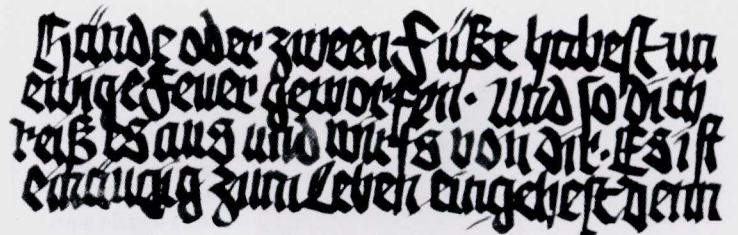 Hände oder zween Füße habest un
ewige Feuer geworfen. Und so dich
reiß es aus und wirfs von dir. Es ist
einäugig zum Leben eingehest denn